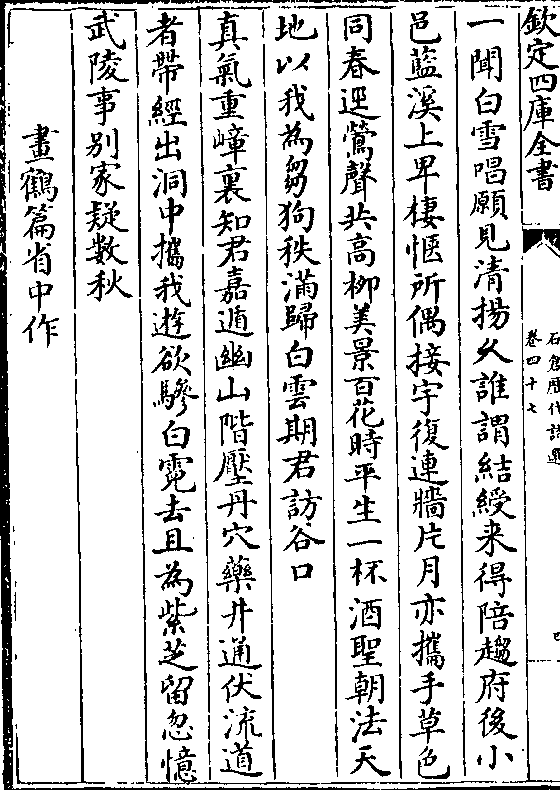 欽定四庫全書
石倉歴代詩選
卷四十七
四
一聞白雪唱願見清揚乆誰謂結綬来得陪趨府後小
邑藍溪上卑棲愜所偶接宇復連牆片月亦攜手草色
同春逕鶯聲共高栁美景百花時平生一杯酒聖朝法天
地以我為芻狗秩滿歸白雲期君訪谷口
真氣重嶂裏知君嘉遁幽山階壓丹穴藥井通伏流道
者帶經出洞中攜我遊欲驂白霓去且為紫芝留忽憶
武陵事别家疑數秋
畫鶴篇省中作